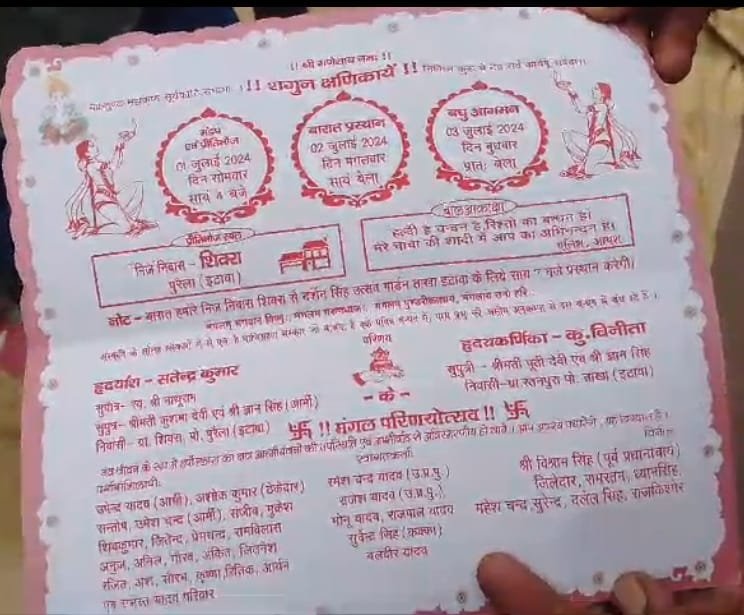 !! श्री गणेशाय नमः !!
!! शगुन क्षणिकायें !!
मंडप
एवं प्रीतिभोज
01 जुलाई 2024
दिन सोमवार
सायं 4 बजे
बारात प्रस्थान
02 जुलाई 2024
दिन मंगलवार
सायं बेला
बधु आगमन
03 जुलाई 2024
दिन बुधवार
प्रातः बेला
प्रीतिभोज स्थल
निज निवास - शिवरा
पुरैला (इटावा)
बालआकांक्षा
हल्दी है चन्दन है रिश्तों का बन्धन है।
मेरे चाचा की शादी में आप का अभिनन्दन है।
नोट - बारात हमारे निज निवास शिवरा से दर्शन सिंह उत्सव गार्डन ताखा इटावा के लिये सायं 7 बजे प्रस्थान करेगी।
परिणय
हृदयांश - सतेन्द्र कुमार
सुपौत्र- स्व. श्री नाथूराम
सुपुत्र- श्रीमती कुशमा देवी एवं श्री ज्ञान सिंह (आर्मी)
निवासी- ग्रा. शिवरा, पो. पुरैला (इटावा)
हृदयकर्णिका - कु. विनीता
सुपुत्री - श्रीमती पूती देवी एवं श्री ज्ञान सिंह
निवासी-ग्रा रतनपुरा पो. ताखा (इटावा)
- के -
!! मंगल परिणयोत्सव !!
स्वागताकांक्षी
दर्शनाभिलाषी
उपेन्द्र यादव (आर्मी), अशोक कुमार (ठेकेदार)
सन्तोष, उमेश चन्द (आर्मी), संजीव, मुकेश
शिवकुमार, जितेन्द्र, प्रेमचन्द्र, रामविलास
अनुज, अनिल, गौरव, अंकित, शिवनेश
रंजित, अंश, सौरभ, कृष्णा, रितिक, आर्यन
एवं समस्त यादव परिवार
रमेश चन्द्र यादव (उ.प्र.पु.)
ब्रजेश यादव (उ.प्र.पु.)
मोनू यादव, राजपाल यादव
सुरेन्द्र सिंह (कक्का)
बलवीर यादव
विनीत
श्री विश्राम सिंह (पूर्व प्रधानाचार्य)
जिलेदार, रामरतन, ध्यानसिंह,
महेश चन्द्र, सुरेन्द्र, दलेल सिंह, राजकिशोर